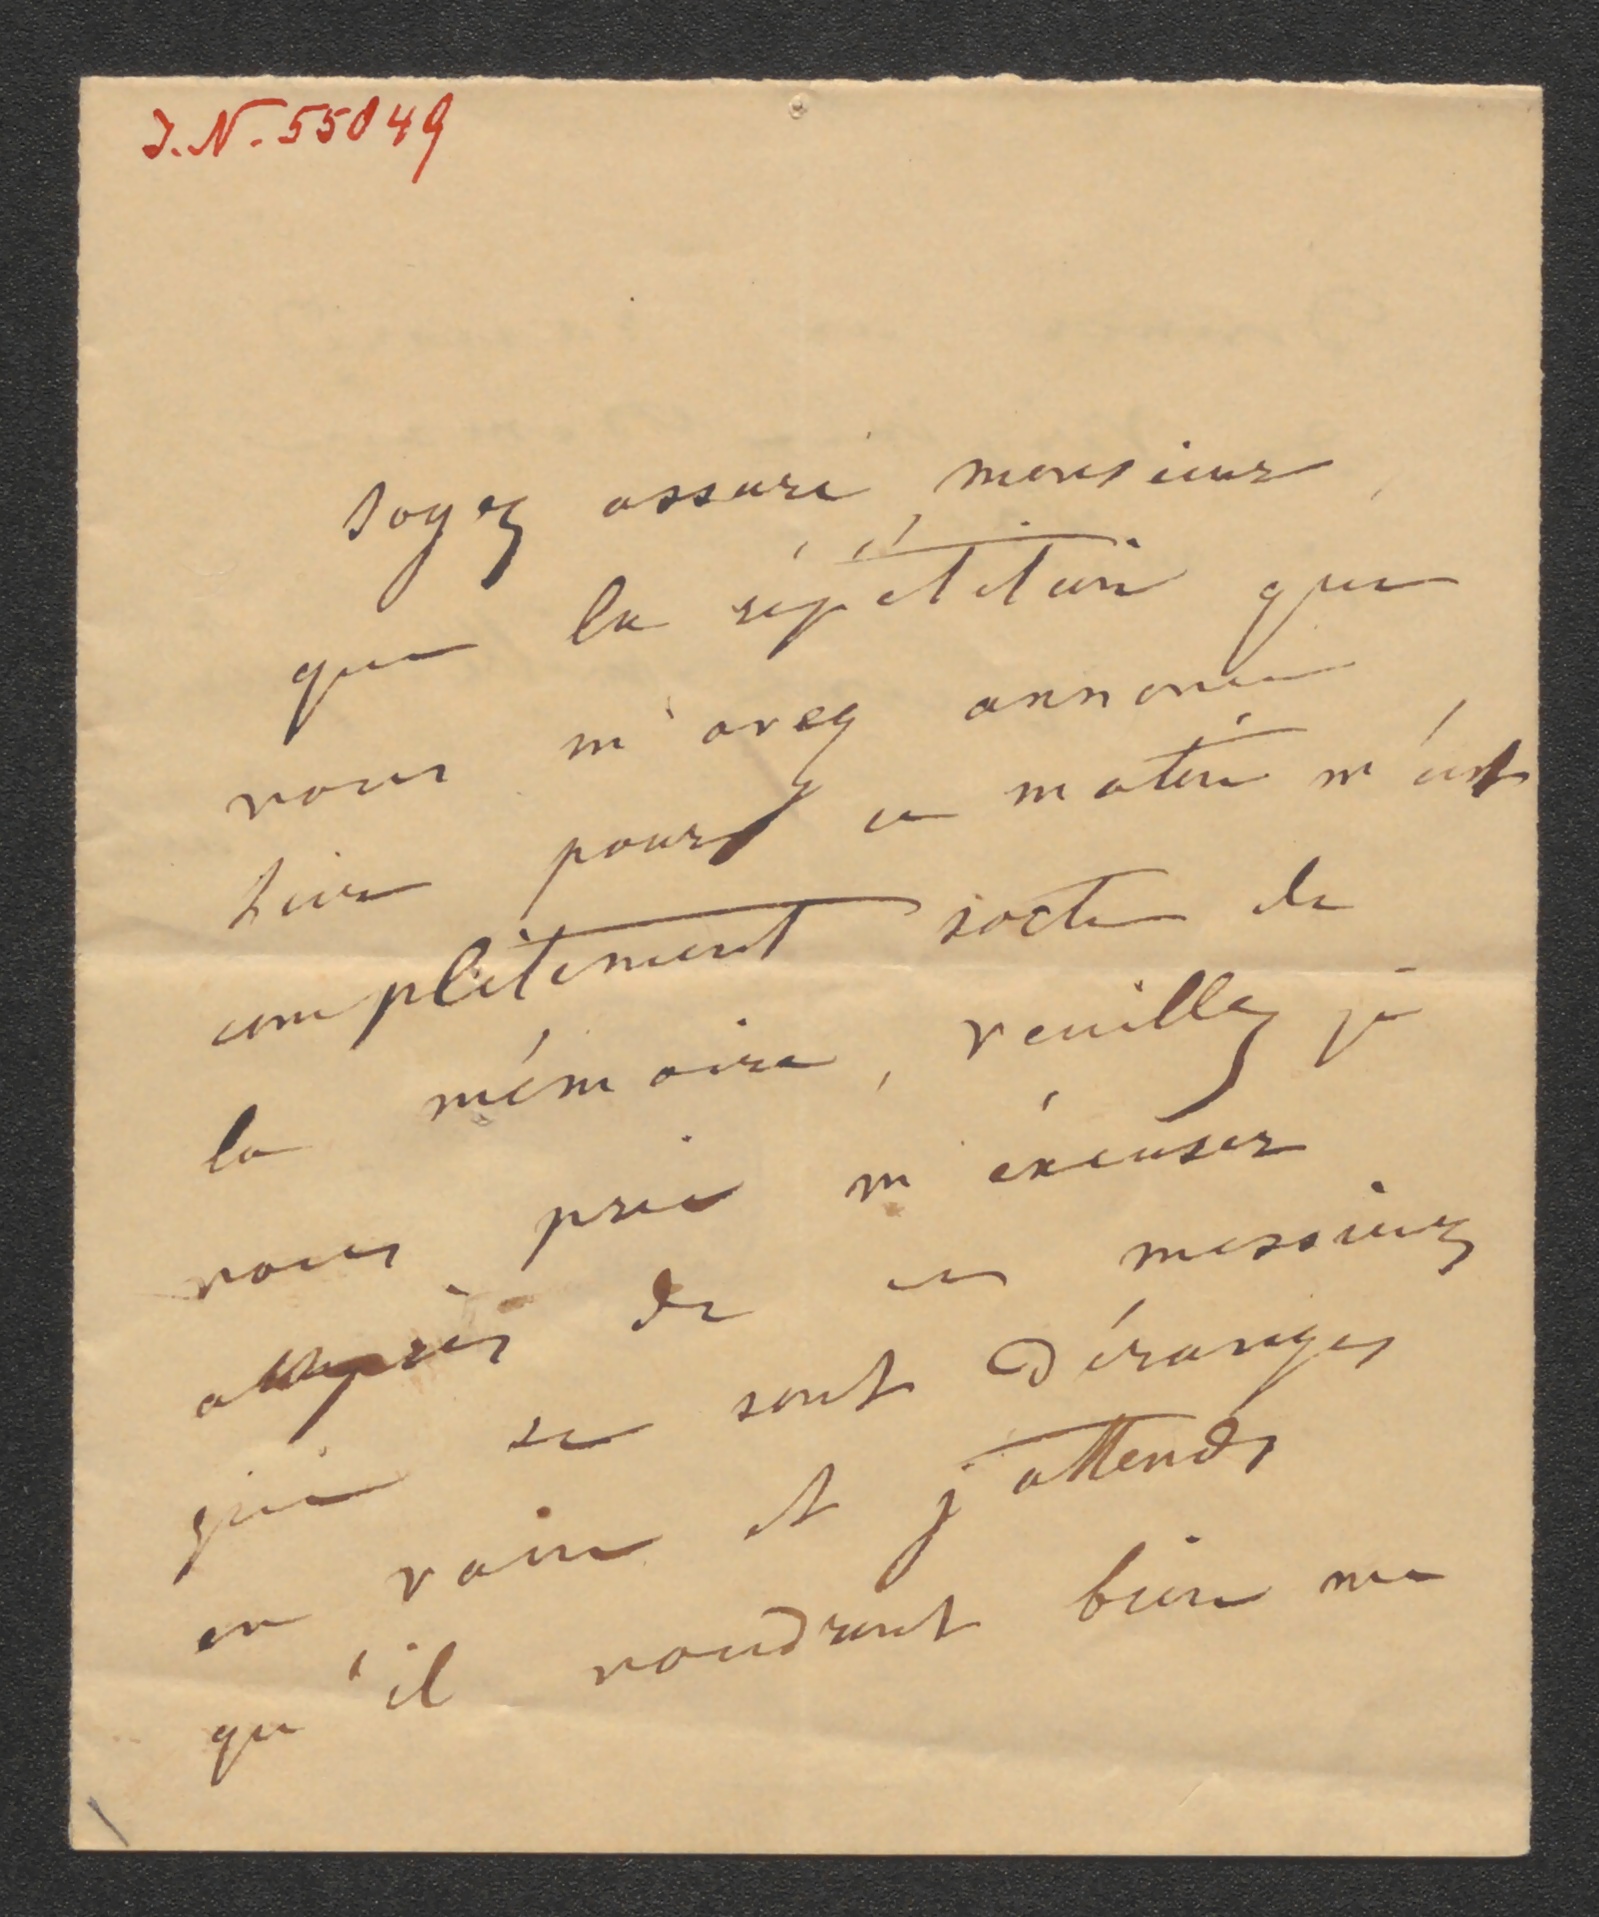 I.N. 55049
soyez assuré, monsieur,
que la répétition que
vous m'avez annoncé
hier pour ce matin m'est
complètement sortie de
la mémoire, veuillez je
vous prie m'éxcuser
auprès de ces messieurs
qui se sont dérangés
en vain et j'attends
qu'il voudront bien me